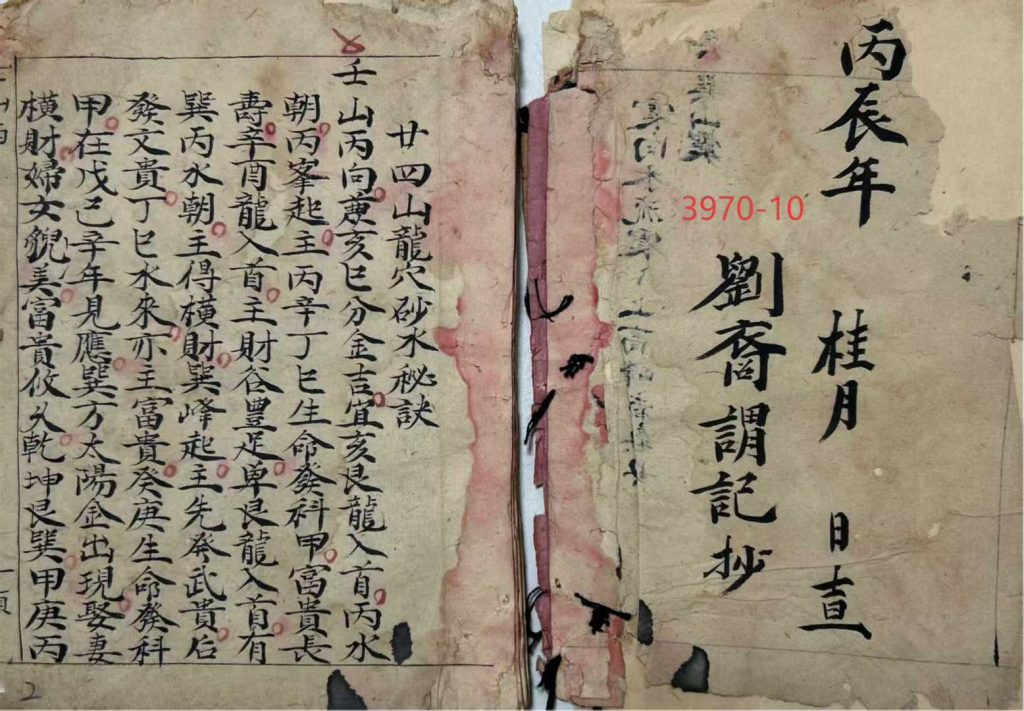 丙辰年 桂月 日吉
劉裔謂記抄
3970-10
廿四山龍穴砂水秘訣
壬山丙向兼亥巳分金吉宜亥艮龍入首丙水
朝丙峯起主丙辛丁巳生命發科甲富貴長
壽辛酉龍入首主財谷豊足单艮龍入首有
巽丙水朝主得橫財巽峰起主先発武貴后
發文貴丁巳水來亦主富貴癸庚生命發科
甲在戊己辛年見應巽方太陽金出現娶妻
橫財婦女貌美富貴攸久乾坤艮巽甲庚丙
2